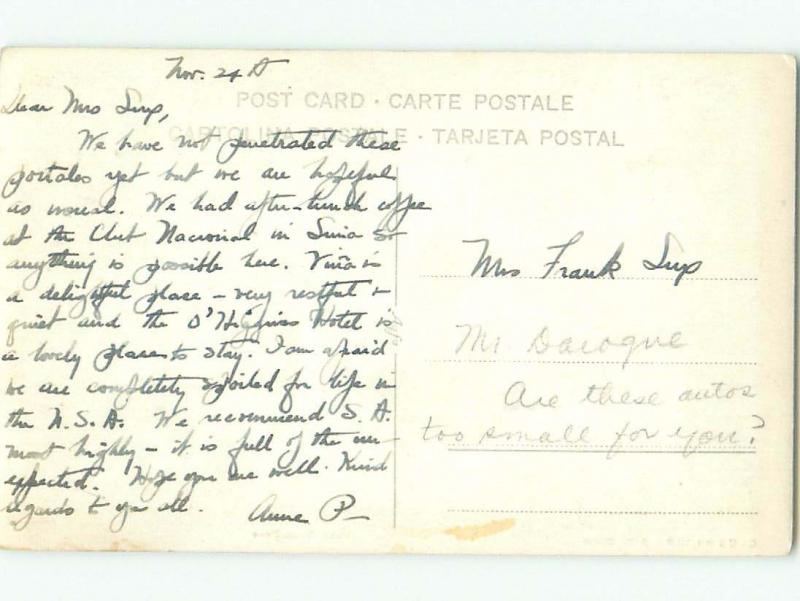 Nov. 24th
POST CARD · CARTE POSTALE
CARTOLINA POSTALE · TARJETA POSTAL
Dear Mrs
We have not penetrated these
portales yet but we are hopeful
as usual. We had after-lunch coffee
at the Club Nacional in Lima so
anything is possible here. Viña is
a delightful place - very restful +
quiet and the O'Higgins Hotel is
a lovely place to stay. I am afraid
we are completely spoiled for life in
the U.S.A. We recommend S.A.
most highly - it is full of the un-
expected. Hope you are well. Kind
regards to you all. Anne P—
Mrs Frank
Mr
Are these autos
too small for you?